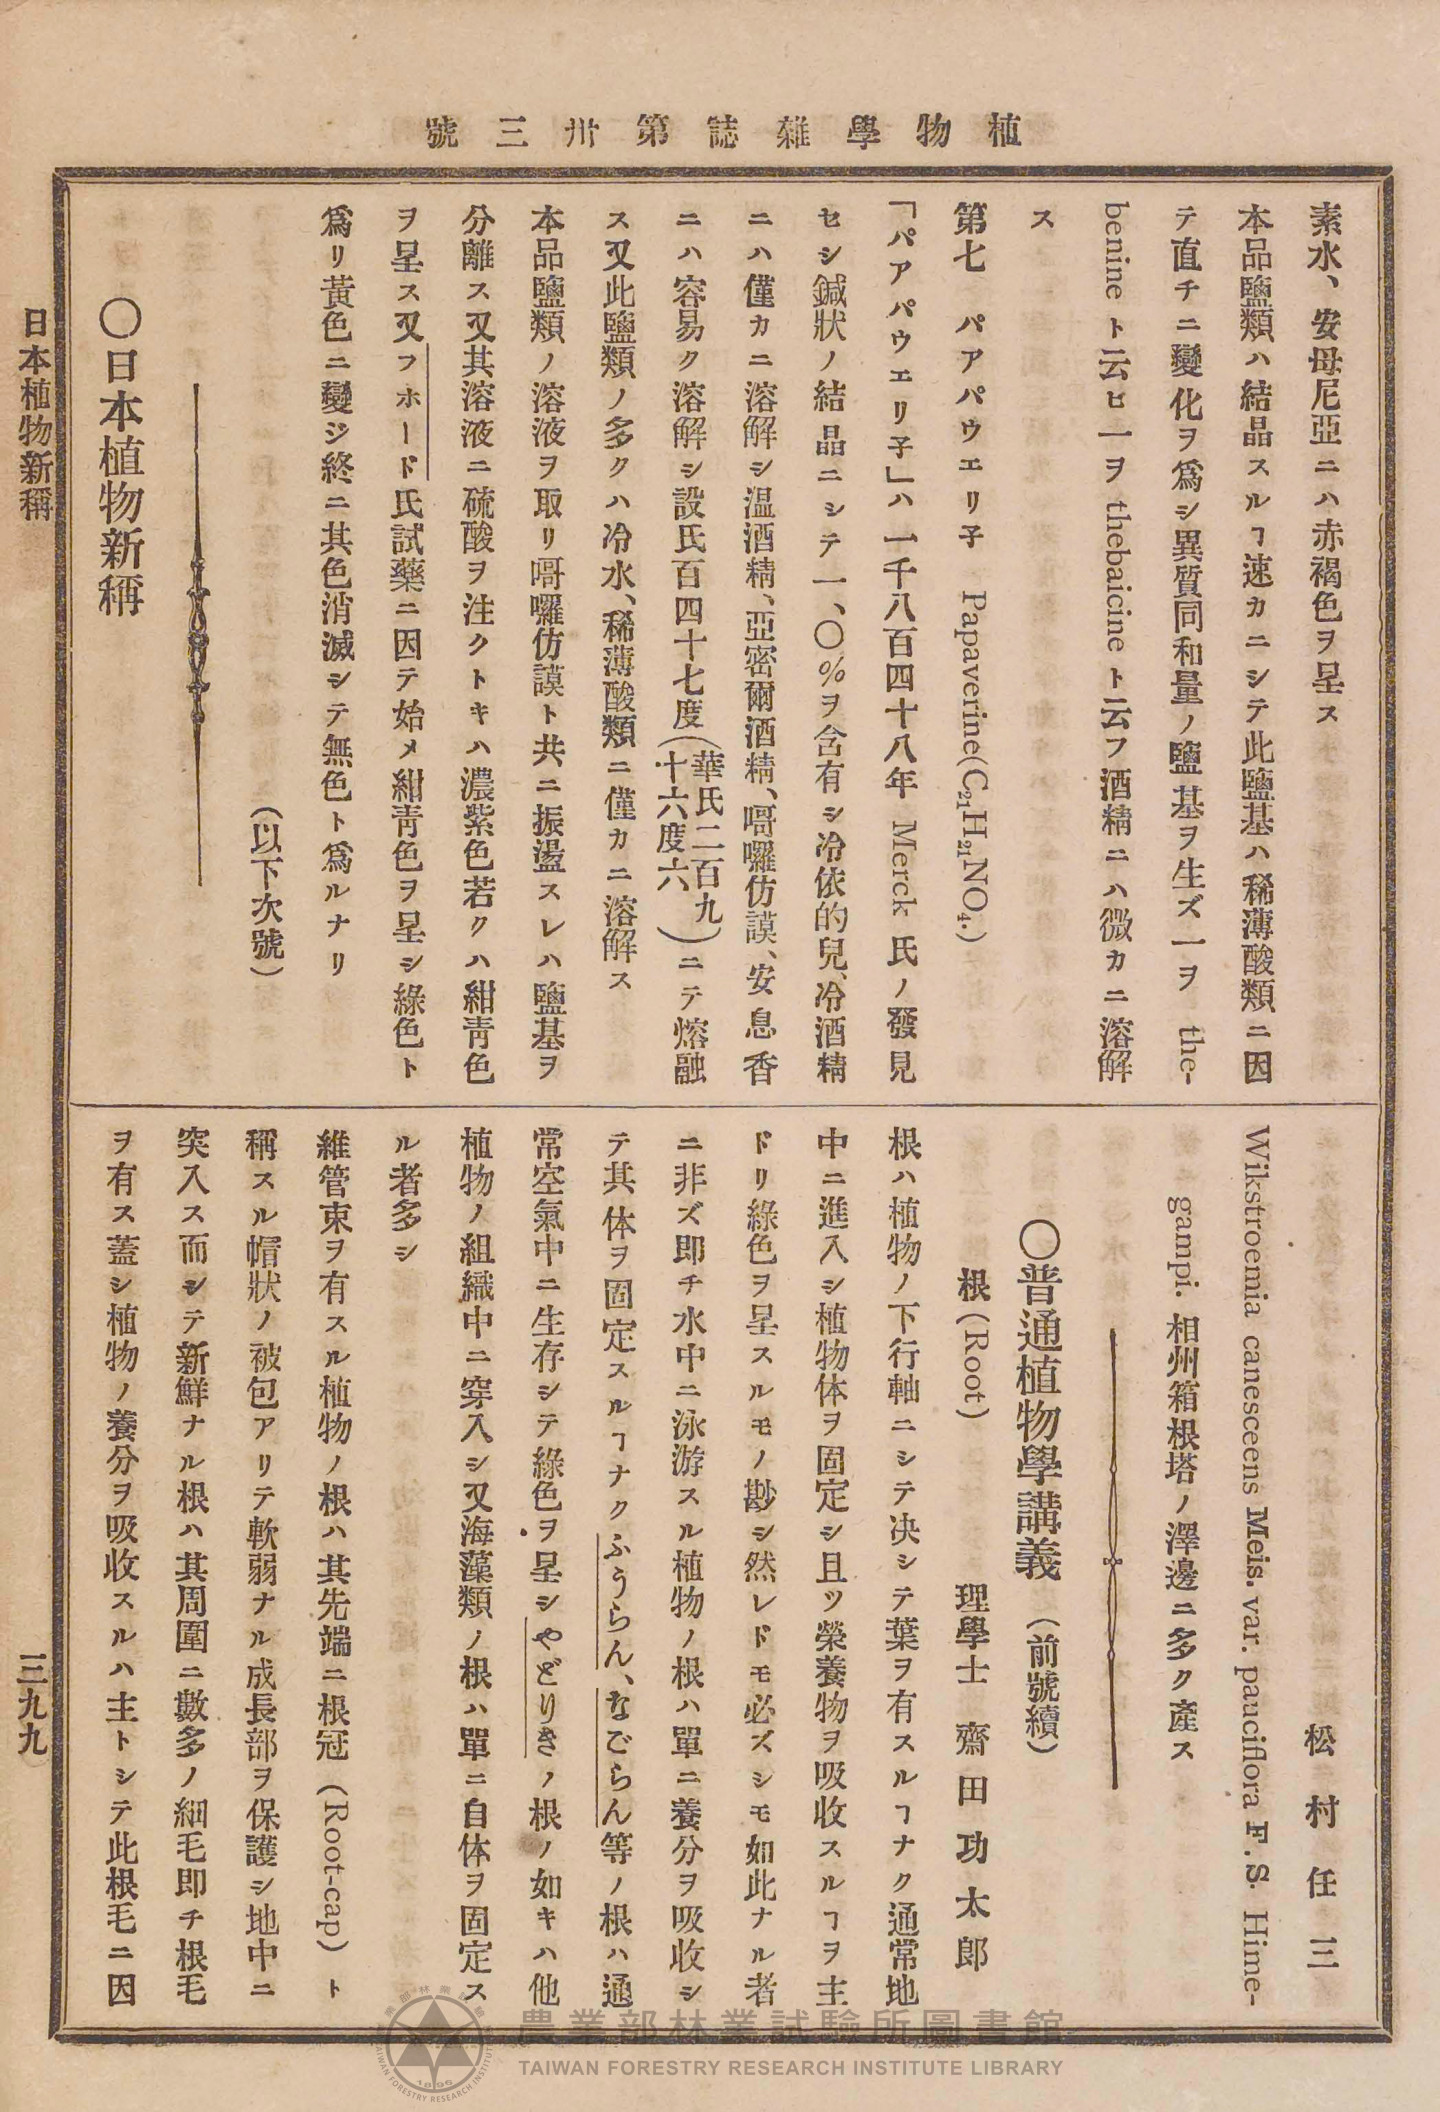 植物學雜誌第卅三號
素水、安母尼亞ニハ赤褐色ヲ呈ス
本品鹽類ハ結晶スルヿ速カニシテ此鹽基ハ稀薄酸類ニ因
テ直チニ變化ヲ爲シ異質同和量ノ鹽基ヲ生ズ一ヲ the-
benine ト云ヒ一ヲ thebaicine ト云フ酒精ニハ微カニ溶解
ス
第七 パアパウエリ子 Papaverine(C₂₁H₂₁NO₄.)
「パアパウエリ子」ハ一千八百四十八年 Merck 氏ノ發見
セシ鍼狀ノ結晶ニシテ一、〇％ヲ含有シ冷依的兒、冷酒精
ニハ僅カニ溶解シ温酒精、亞密爾酒精、嗬囉仿謨、安息香
ニハ容易ク溶解シ設氏百四十七度(華氏二百九十六度六)ニテ熔融
ス又此鹽類ノ多クハ冷水、稀薄酸類ニ僅カニ溶解ス
本品鹽類ノ溶液ヲ取リ嗬囉仿謨ト共ニ振盪スレハ鹽基ヲ
分離ス又其溶液ニ硫酸ヲ注クトキハ濃紫色若クハ紺靑色
ヲ呈ス又フホード氏試藥ニ因テ始メ紺靑色ヲ呈シ綠色ト
爲リ黃色ニ變ジ終ニ其色消滅シテ無色ト爲ルナリ
(以下次號)
〇日本植物新稱
松村任三
Wikstroemia canesceens Meis. var. pauciflora F. S. Hime-
gampi. 相州箱根塔ノ澤邊ニ多ク產ス
〇普通植物學講義 (前號續)
根(Root) 理學士 齋田功太郎
根ハ植物ノ下行軸ニシテ決シテ葉ヲ有スルヿナク通常地
中ニ進入シ植物体ヲ固定シ且ツ榮養物ヲ吸收スルヿヲ主
ドリ綠色ヲ呈スルモノ尠シ然レドモ必ズシモ如此ナル者
ニ非ズ即チ水中ニ泳游スル植物ノ根ハ單ニ養分ヲ吸收シ
テ其体ヲ固定スルヿナクふうらん、なごらん等ノ根ハ通
常空氣中ニ生存シテ綠色ヲ呈シやどりきノ根ノ如キハ他
植物ノ組織中ニ穿入シ又海藻類ノ根ハ單ニ自体ヲ固定ス
ル者多シ
維管束ヲ有スル植物ノ根ハ其先端ニ根冠 (Root-cap) ト
稱スル帽狀ノ被包アリテ軟弱ナル成長部ヲ保護シ地中ニ
突入ス而シテ新鮮ナル根ハ其周圍ニ數多ノ細毛即チ根毛
ヲ有ス蓋シ植物ノ養分ヲ吸收スルハ主トシテ此根毛ニ因
日本植物新稱
三九九
農業部林業試驗所圖書館
TAIWAN FORESTRY RESEARCH INSTITUTE LIBRARY
農業部林業試驗所
1896
TAIWAN FORESTRY RESEARCH INSTITUTE